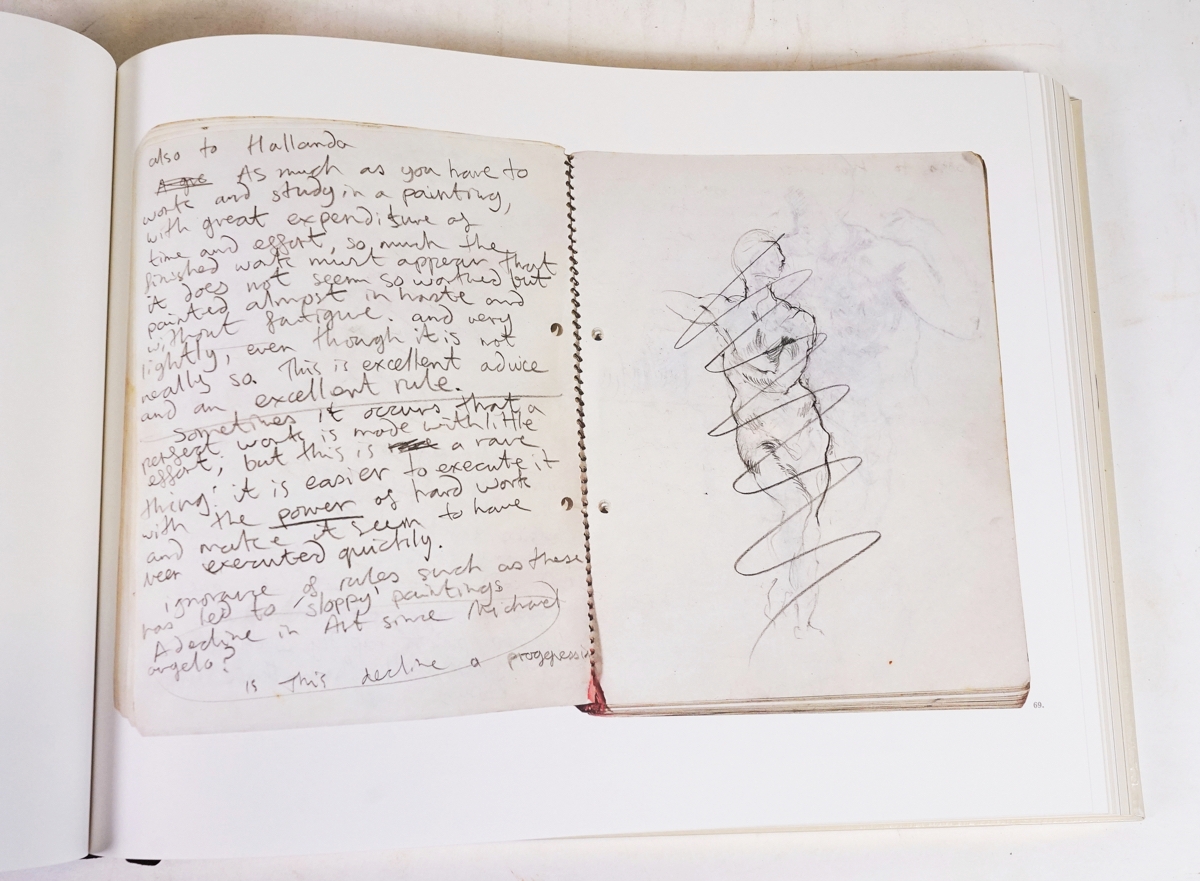 also to Hollanda
As much as you have to
work and study in a painting,
with great expenditure of
time and effort, so much the
finished work must appear that
it does not seem so worked but
painted almost in haste and
without fatigue. and very
lightly, even though it is not
really so. This is excellent advice
and an excellent rule.
Sometimes it occurs that a
perfect work is made with little
effort, but this is a rare
thing: it is easier to execute it
with the power of hard work
and make it seem to have
been executed quickly.
ignorance of rules such as these
has led to 'sloppy' paintings
A decline in Art since Michael
angelo?
is this decline a
69.